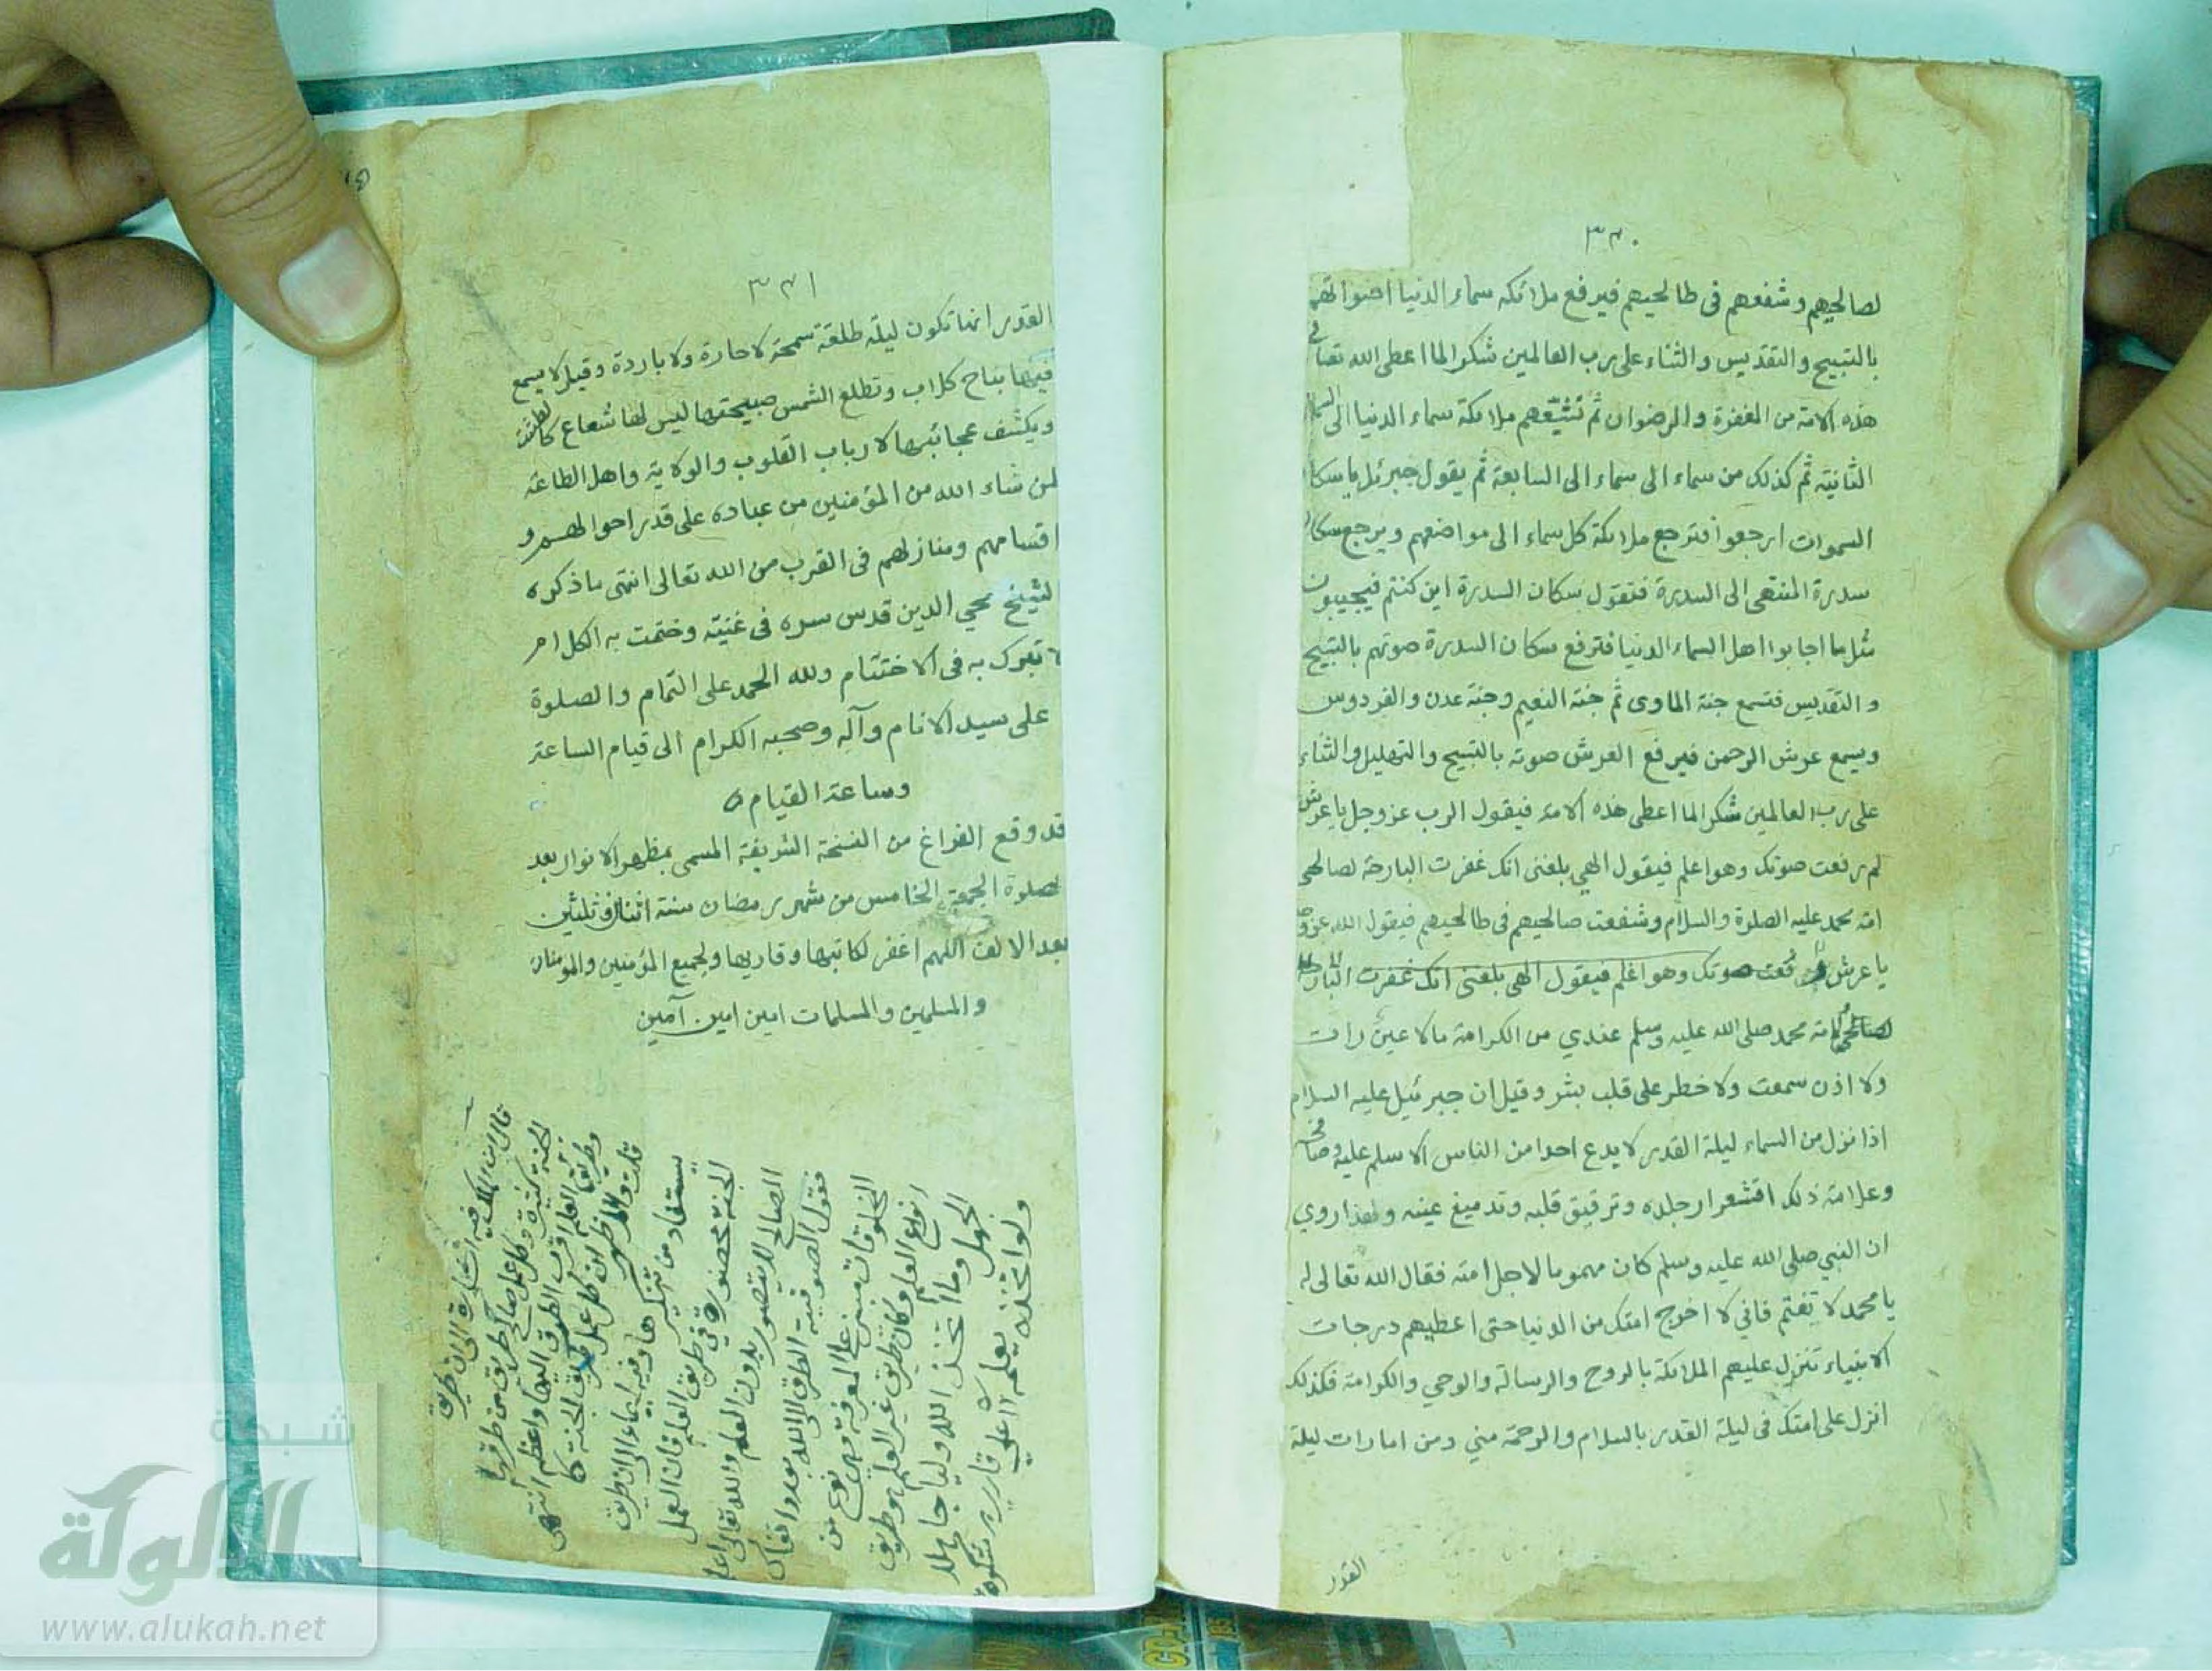 ٣٣٠
لصالحيهم وشفعهم فى طالحيهم فيرفع ملائكه سماء الدنيا اصواتهم
بالتسبيح والتقديس والثناء على رب العالمين شكرا لما اعطى الله تعالى
هذه الامة من المغفرة والرضوان ثم تشيّعهم ملائكة سماء الدنيا الى السماء
الثانية ثم كذلك من سماء الى سماء الى السابعة ثم يقول جبرئل يا سكان
السموات ارجعوا فترجع ملائكة كل سماء الى مواضعهم ويرجع سكان
سدرة المنتهى الى السدرة فتقول سكان السدرة اين كنتم فيجيبون
مثل ما اجابوا اهل السماء الدنيا فترفع سكان السدرة صوتهم بالتسبيح
والتقديس فتسمع جنة الماوى ثم جنة النعيم وجنة عدن والفردوس
ويسمع عرش الرحمن فيرفع العرش صوته بالتسبيح والتهليل والثناء
على رب العالمين شكرا لما اعطى هذه الامة فيقول الرب عز وجل يا عرش
لم رفعت صوتك وهو اعلم فيقول الهي بلغنى انك غفرت البارحة لصالحى
امة محمد عليه الصلوة والسلام وشفعت صالحيهم فى طالحيهم فيقول الله عز وجل
يا عرش رفعت صوتك وهو اعلم فيقول الهى بلغنى انك غفرت البارحة
لامة محمد صلى الله عليه وسلم عندي من الكرامة مالا عين رات
ولا اذن سمعت ولا خطر على قلب بشر وقيل ان جبرئيل عليه السلام
اذا نزل من السماء ليلة القدر لا يدع احدا من الناس الا سلم عليه وصافحه
وعلامة ذلك اقشعرار جلده وترقيق قلبه وتدميغ عينه ولهذا روي
ان النبي صلى الله عليه وسلم كان مهموما لاجل امته فقال الله تعالى له
يا محمد لا تغتم فاني لا اخرج امتك من الدنيا حتى اعطيهم درجات
الانبياء تنزل عليهم الملائكة بالروح والرسالة والوحي والكرامة فكذلك
انزل على امتك فى ليلة القدر بالسلام والرحمة مني ومن امارات ليلة
القدر
٣٣١
القدر انها تكون ليلة طلقة سمحة لا حارة ولا باردة وقيل لا يسمع
فيها نباح كلاب وتطلع الشمس صبيحتها ليس لها شعاع كالطشت
ويكشف عجائبها لارباب القلوب والولاية واهل الطاعة
لمن شاء الله من المؤمنين من عباده على قدر احوالهم و
اقسامهم ومنازلهم فى القرب من الله تعالى انتهى ما ذكره
الشيخ محيي الدين قدس سره فى غنيته وختمت به الكلام
تبرك به فى الاختتام ولله الحمد على التمام والصلوة
على سيد الانام وآله وصحبه الكرام الى قيام الساعة
وساعة القيام
قد وقع الفراغ من النسخة الشريفة المسمى بمظهر الانوار بعد
صلوة الجمعة الخامس من شهر رمضان سنة اثنان وثلثين
بعد الالف اللهم اغفر لكاتبها وقاريها ولجميع المؤمنين والمؤمنات
والمسلمين والمسلمات امين امين آمين
فيه اشارة الى ان طريق
الجنة كثيرة وكل عمل صالح طريق من طرقها
وطريق العلم اقرب الطرق اليها واعظم انتهى
يستفاد من تنكيرها وفيه ايماء الى ان طريق
الجنة محصورة في طريق العلم فان العمل
الصالح لا يتصور بدون العلم والله تعالى اعلم
فقول الصوفية الطرق الى الله بعدد انفاس
المخلوقات مبنى على المعرفة وهي نوع من
انواع العلم وكان طريق غير العلم هو طريق
الجهل وما اتخذ الله وليا جاهلا
ولو اتخذه لعلمه
شبكة
الألوكة
www.alukah.net